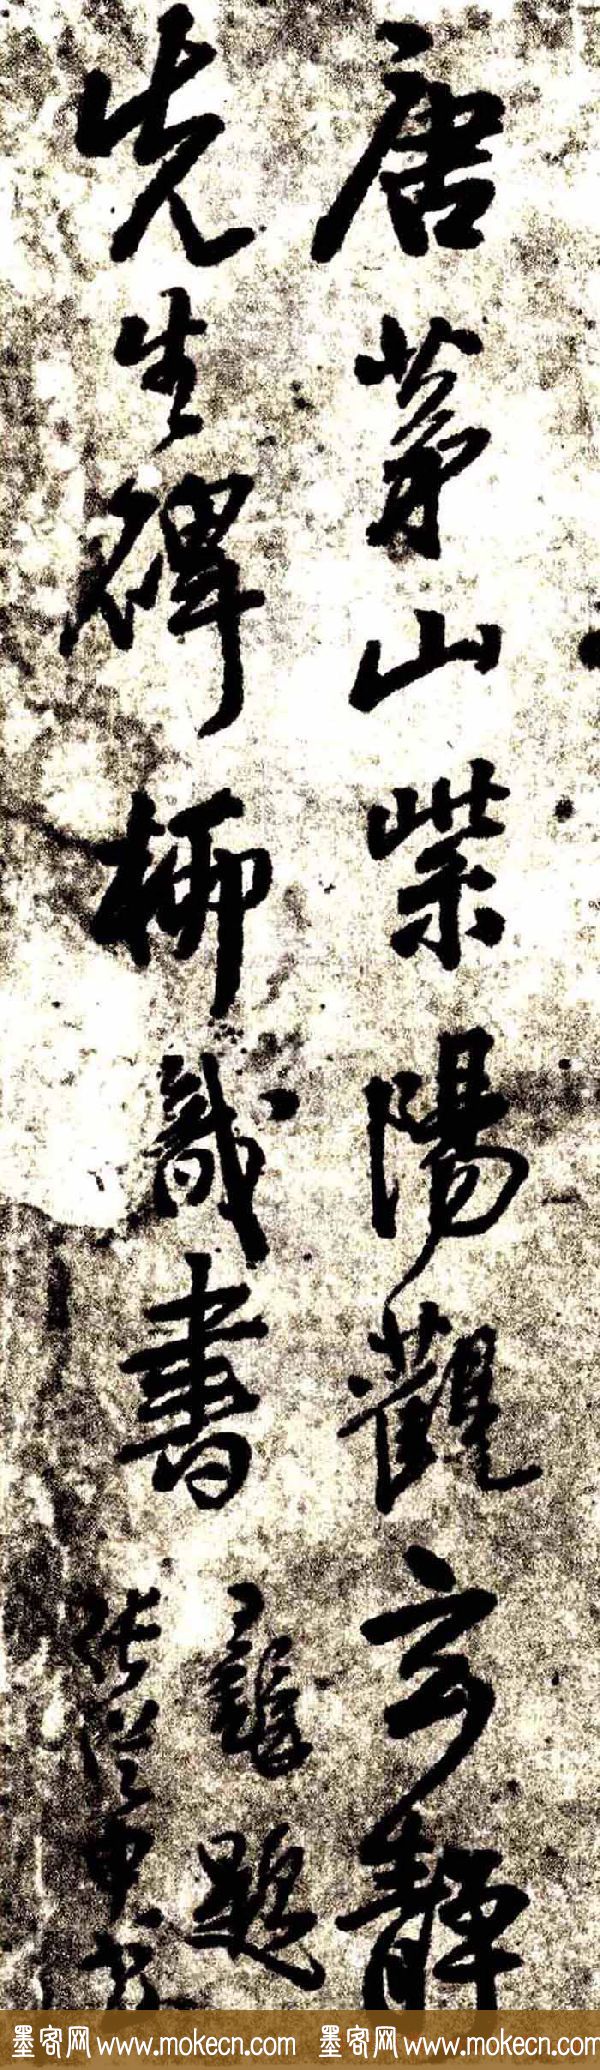 唐茅山紫陽觀玄靜
先生碑 柳識書
題
張從申書
墨客网 www.mokecn.com 墨客网 www.mokecn.com